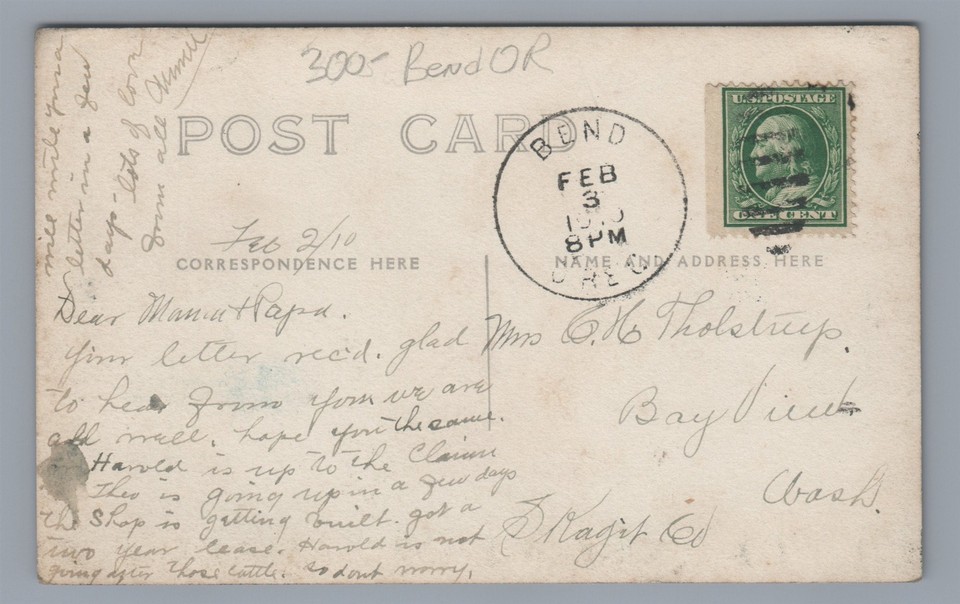 300- Bend OR
POST CARD
U.S. POSTAGE
ONE CENT
BEND
FEB
3
8 PM
OREG
Feb 2/10
CORRESPONDENCE HERE
NAME AND ADDRESS HERE
Dear Mama & Papa.
Your letter rec'd. glad
to hear from you we are
all well. hope you the same.
Harold is up to the Claim
Theo is going up in a few days
the Shop is getting built. got a
two year lease. Harold is not
going after those cattle. so dont worry.
will write you a
letter in a few
days - lots of love
from all
Mrs C. H Tholstrup.
Bay View
Wash.
Skagit Co